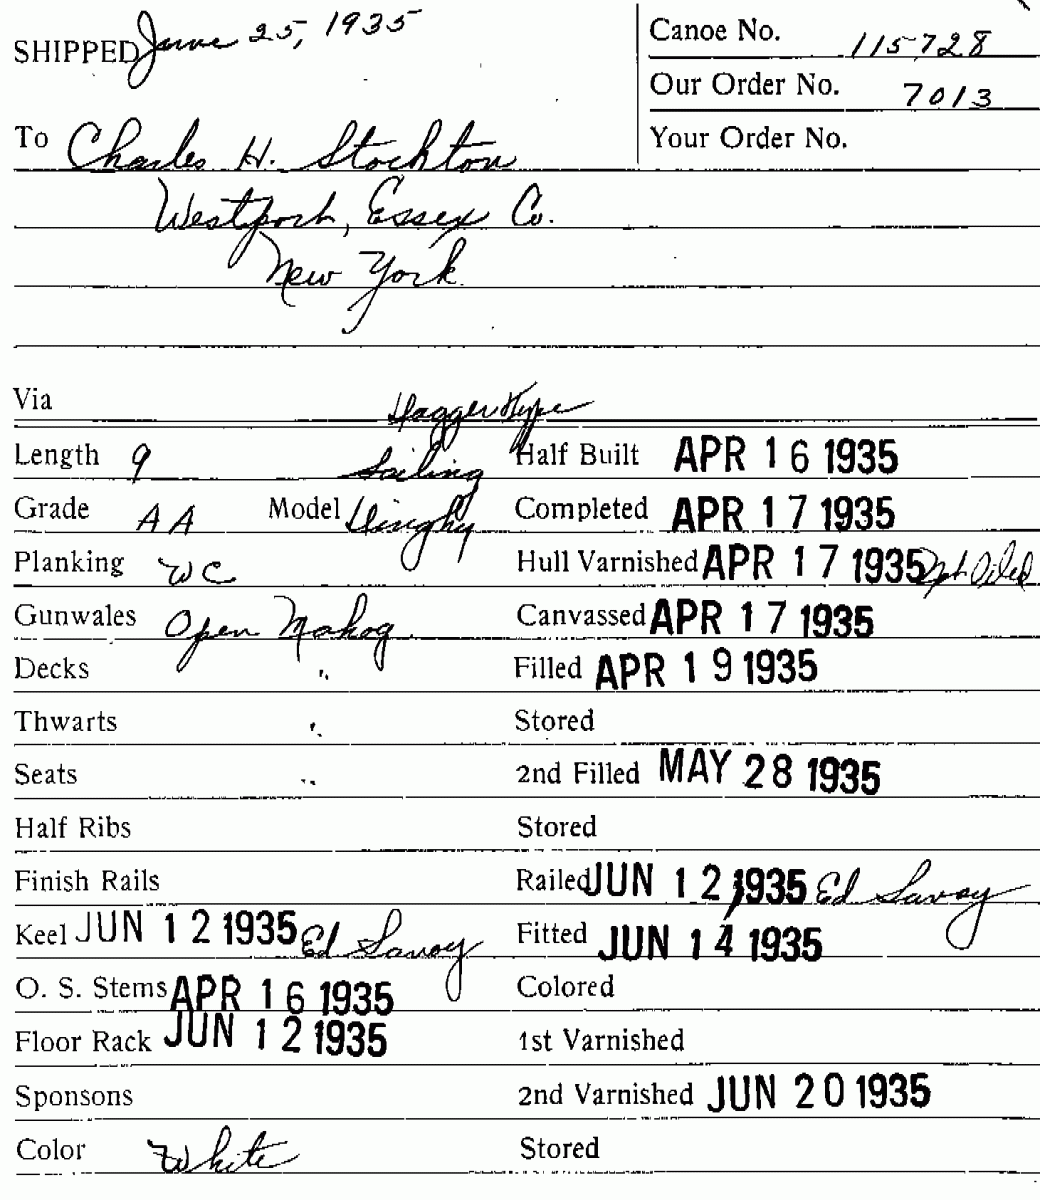 SHIPPED June 25, 1935
Canoe No. 115728
Our Order No. 7013
Your Order No.
To Charles H. Stockton
Westport, Essex Co.
New York
Via
Dagger Type
Length 9 Sailing
Half Built APR 16 1935
Grade AA Model Dinghy
Completed APR 17 1935
Planking WC
Hull Varnished APR 17 1935 Oiled
Gunwales Open Mahog.
Canvassed APR 17 1935
Decks "
Filled APR 19 1935
Thwarts "
Stored
Seats "
2nd Filled MAY 28 1935
Half Ribs
Stored
Finish Rails
Railed JUN 12 1935 Ed Savoy
Keel JUN 12 1935 Ed Savoy
Fitted JUN 14 1935
O. S. Stems APR 16 1935
Colored
Floor Rack JUN 12 1935
1st Varnished
Sponsons
2nd Varnished JUN 20 1935
Color White
Stored